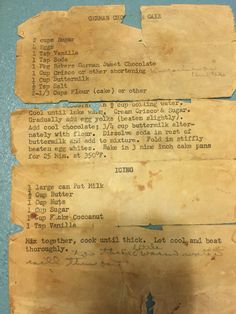 GERMAN CAKE
2 cups Sugar
4 Eggs
1 Tsp Vanilla
1 Tsp Soda
1 Pkg Bakers German Sweet Chocolate
1 Cup Crisco or other shortening
1 Cup Buttermilk
½ Tsp Salt
2-1/3 Cups Flour (cake) or other
in ½ cup boiling water.
Cool until luke warm. Cream Crisco & Sugar.
Gradually add egg yolks (beaten slightly).
Add cool chocolate; 3/4 cup buttermilk alter-
nately with flour. Dissolve soda in rest of
buttermilk and add to mixture. Fold in stiffly
beaten egg whites. Bake in 3 nine inch cake pans
for 25 Min. at 350°F.
ICING
1 large can Pet Milk
½ Cup Butter
1 Cup Nuts
1 Cup Sugar
1 Cup Flake Cocoanut
1 Tsp Vanilla
Mix together, cook until thick. Let cool and beat
thoroughly.